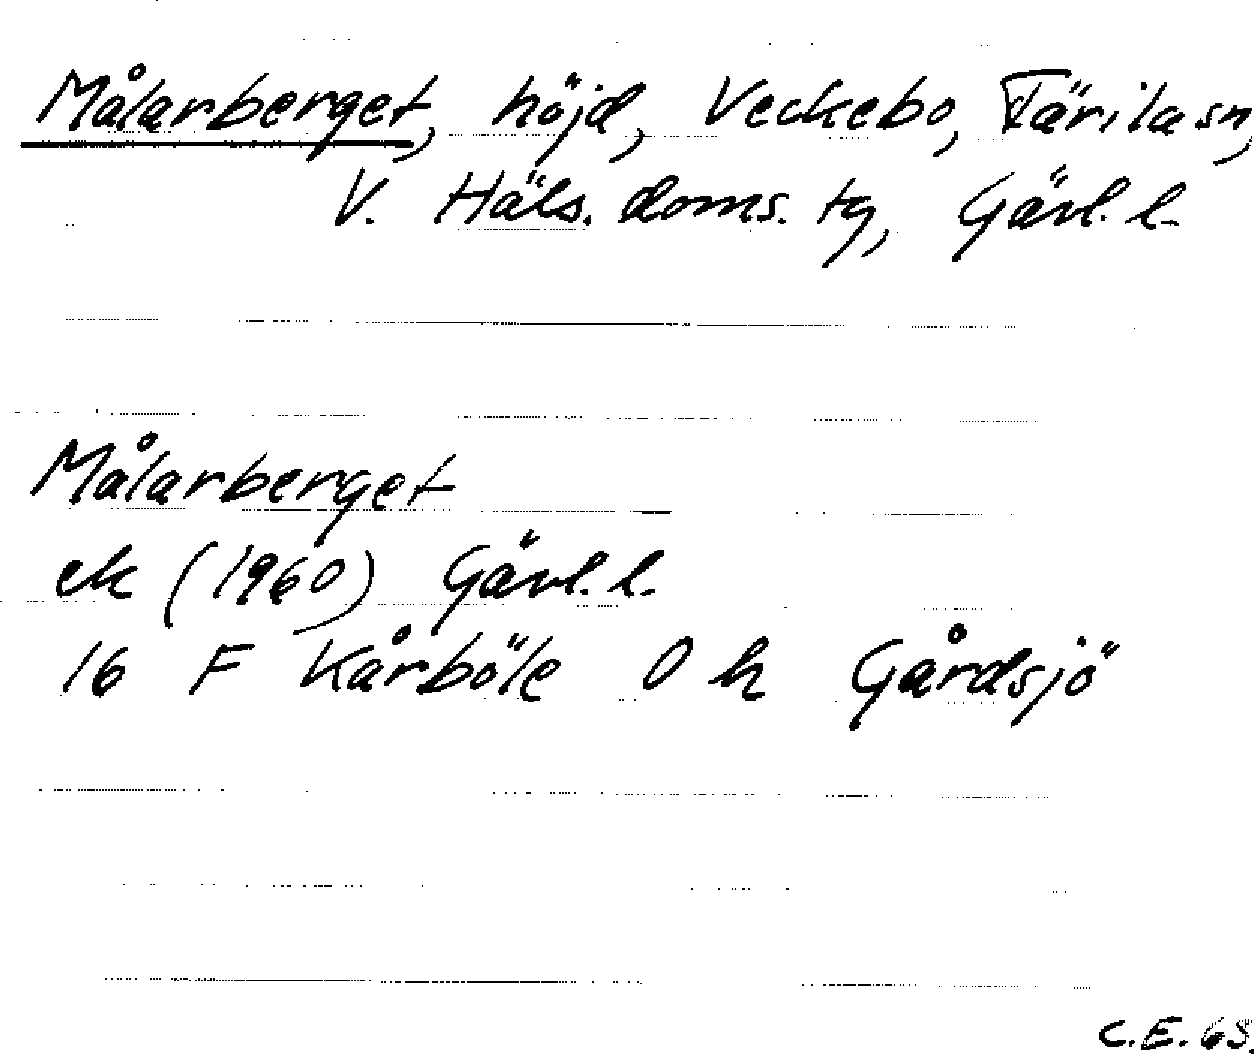 Målarberget, höjd, Veckebo, Färila sn,
V. Häls. doms. tg, Gävl. l.
Målarberget
ek (1960) Gävl. l.
16 F Kårböle 0 h Gårdsjö
C.E. 65.